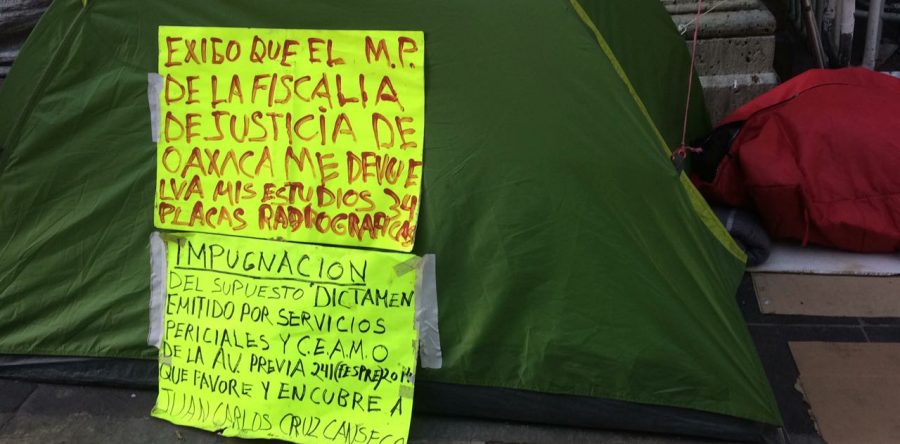 EXIGO QUE EL M.P.
DE LA FISCALIA
DE JUSTICIA DE
OAXACA ME DEVUE
LVA MIS ESTUDIOS 34
PLACAS RADIOGRAFICAS
IMPUGNACION
DEL SUPUESTO DICTAMEN
EMITIDO POR SERVICIOS
PERICIALES Y C.E.A.M.O
DE LA AV. PREVIA 241(FESPRE)2014
QUE FAVORE Y ENCUBRE A
JUAN CARLOS CRUZ CANSECO